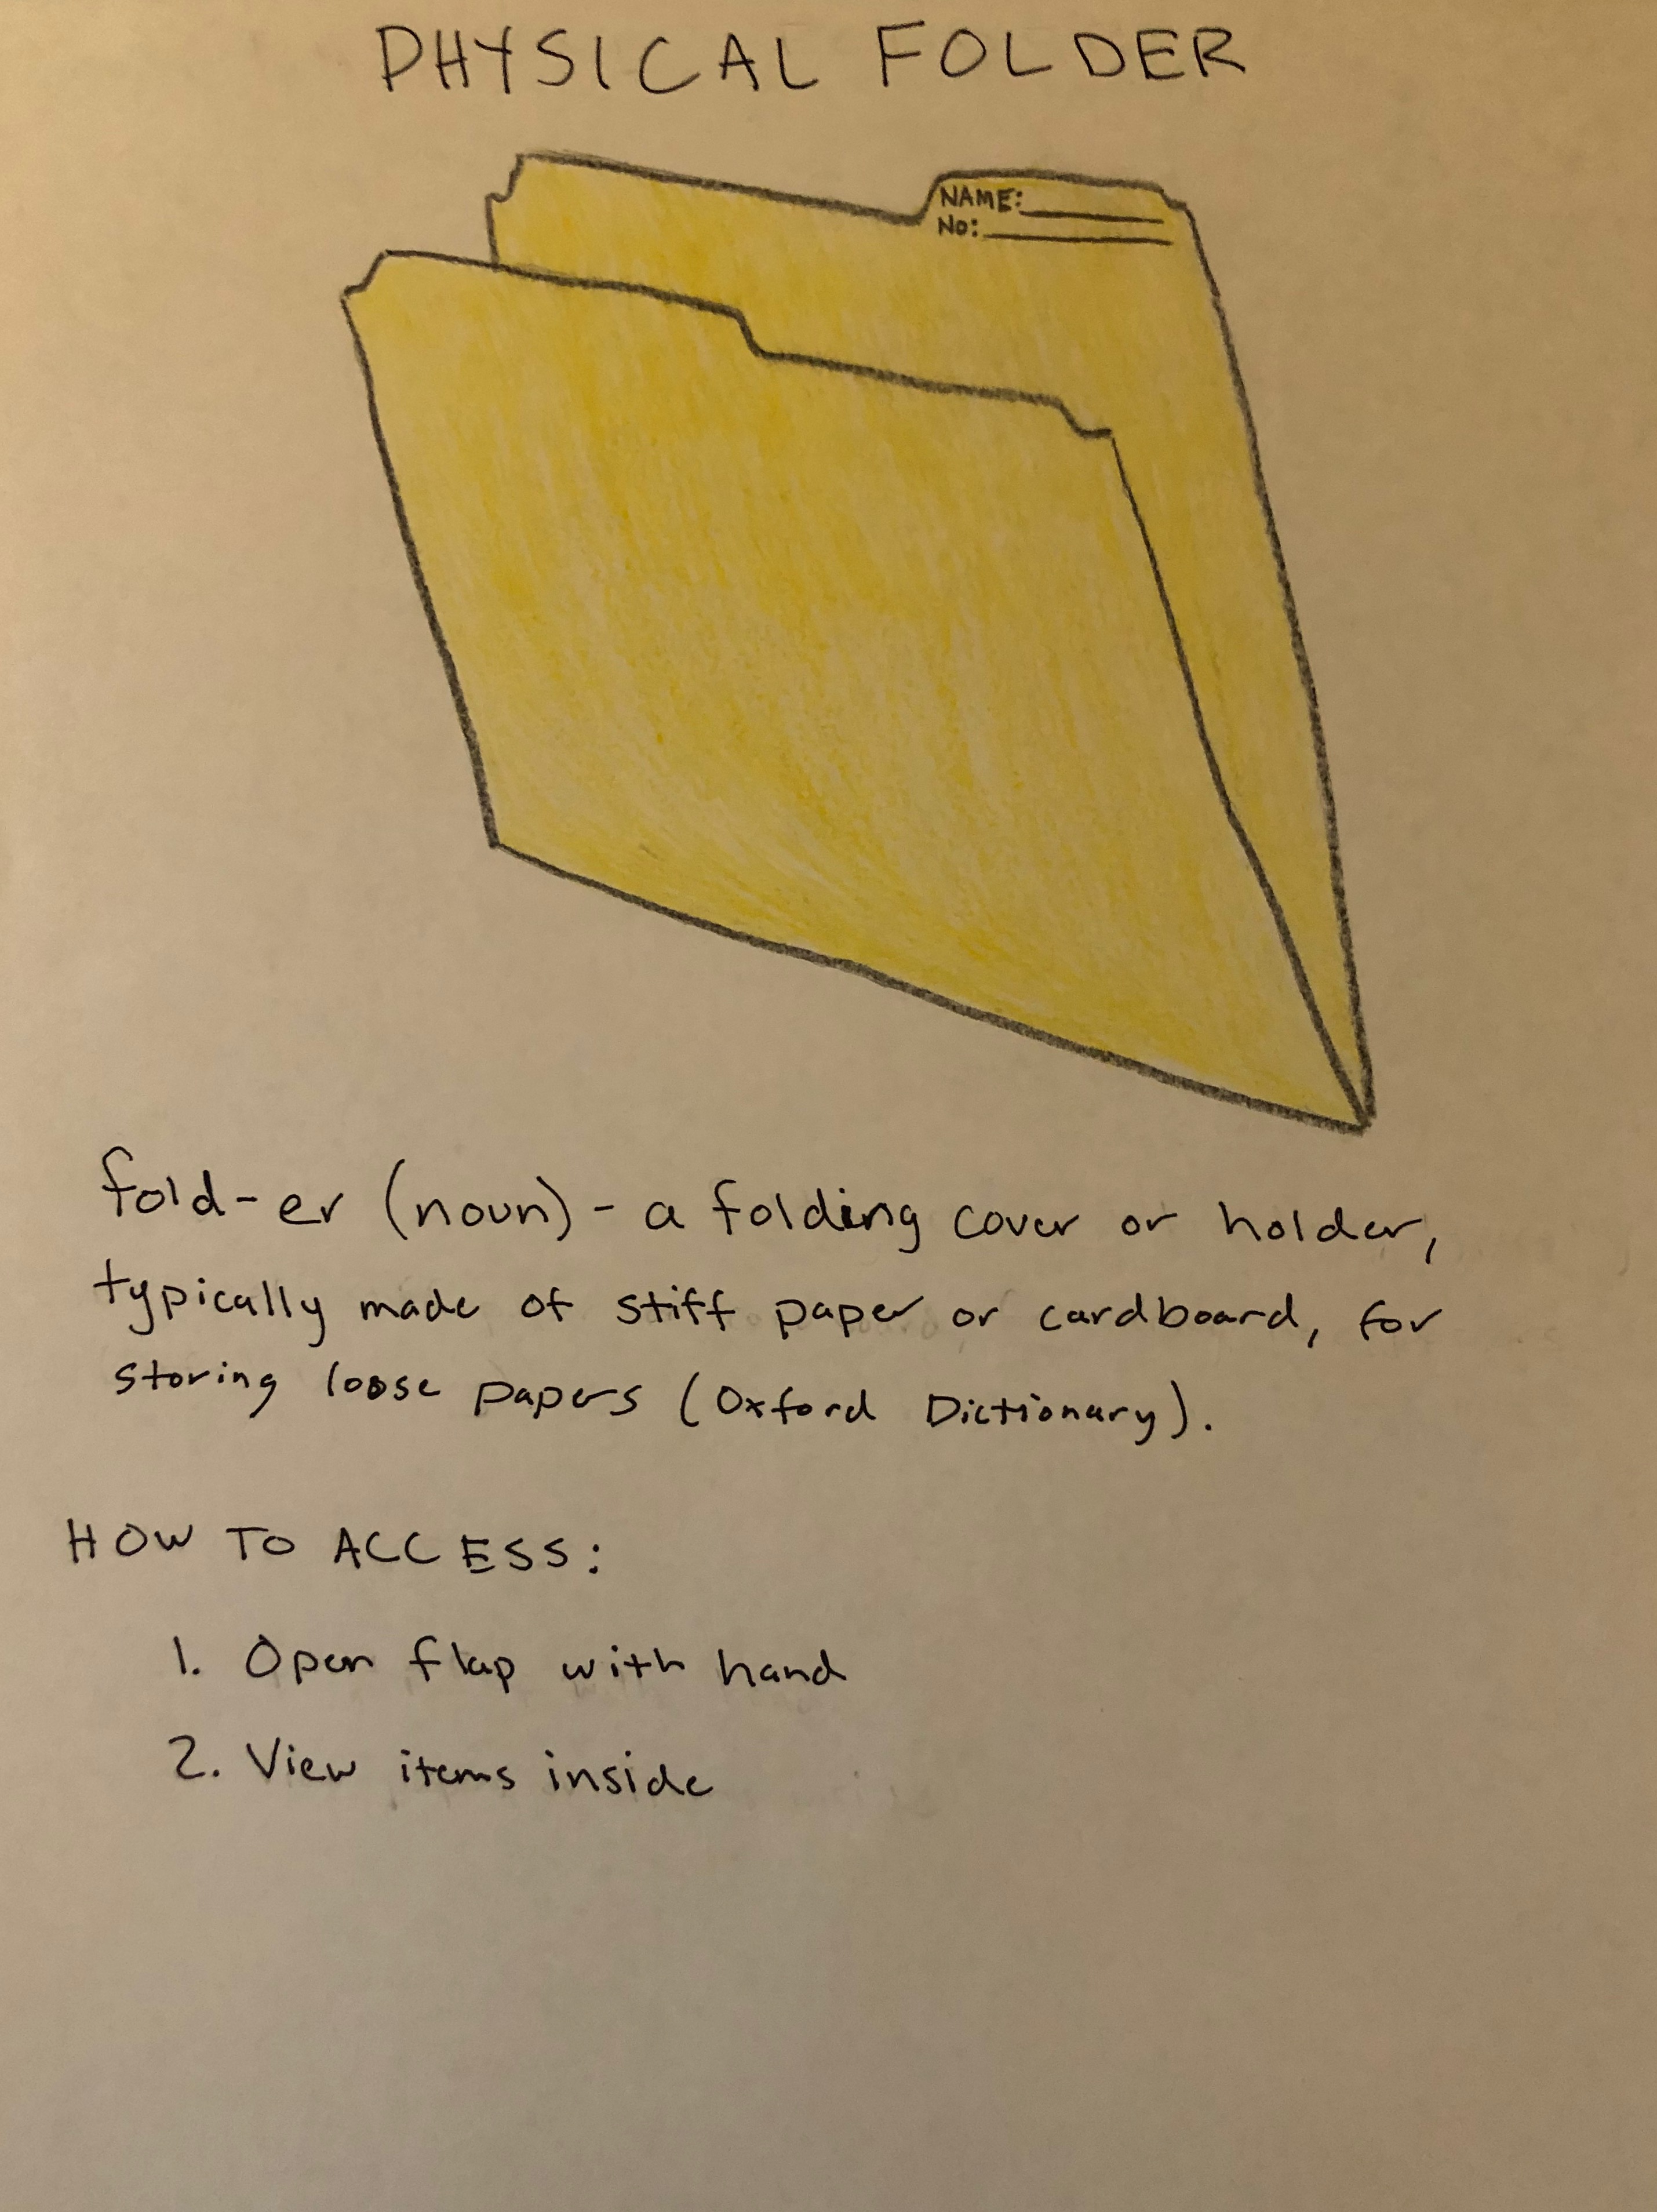 PHYSICAL FOLDER
NAME:
No:
fold-er (noun) - a folding cover or holder,
typically made of stiff paper or cardboard, for
storing loose papers (Oxford Dictionary).
HOW TO ACCESS:
1. Open flap with hand
2. View items inside